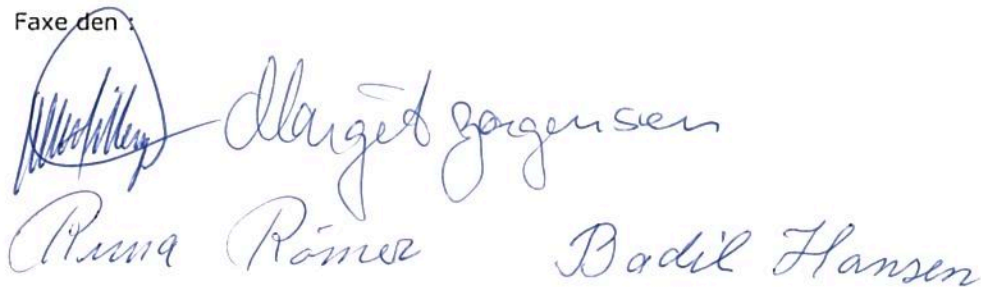 Faxe den :
Margit Jørgensen
Römer Bodil Hansen